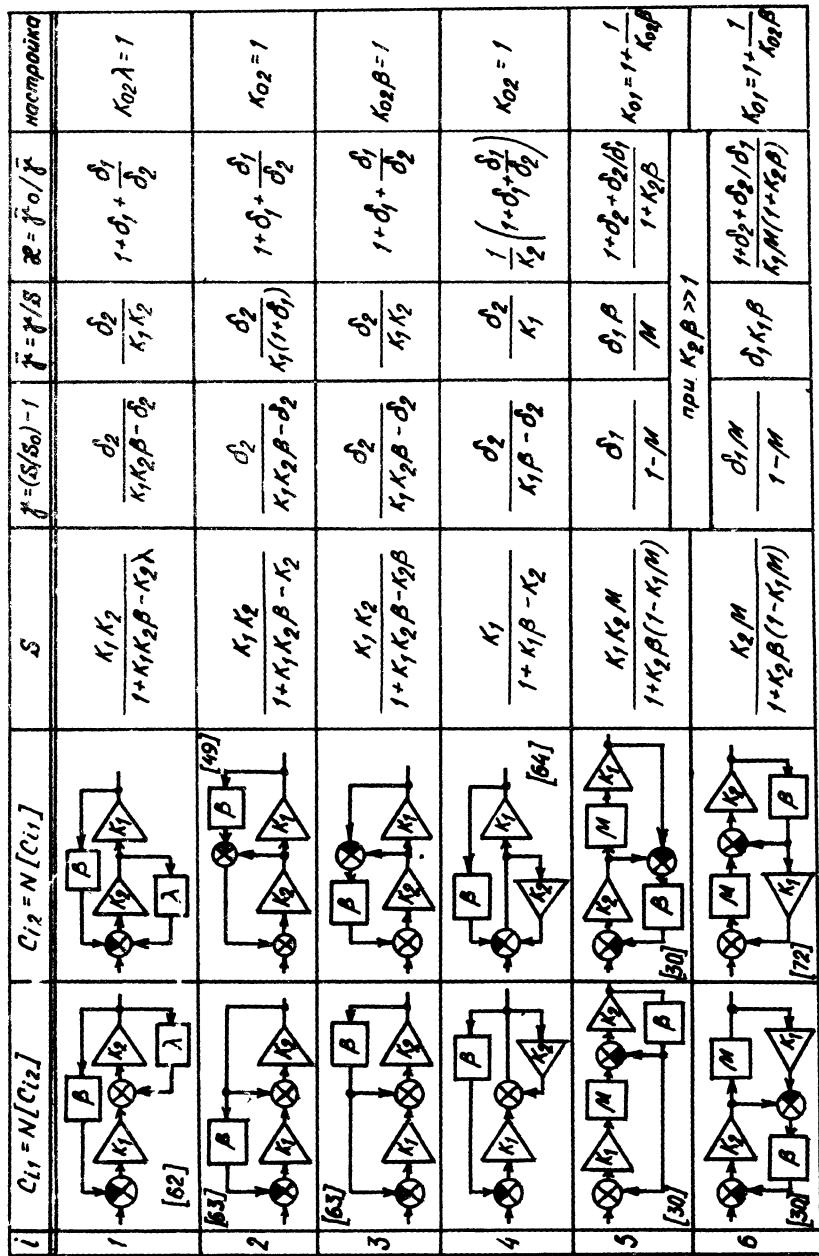 i
C_{i1} = N[C_{i2}]
C_{i2} = N[C_{i1}]
S
γ = (S/S_0) - 1
γ̄ = γ/S
æ = γ̄_0/γ̄
настройка
1
β
K_1
K_2
λ
[62]
β
K_2
K_1
λ
K_1 K_2 / (1 + K_1 K_2 β - K_2 λ)
δ_2 / (K_1 K_2 β - δ_2)
δ_2 / (K_1 K_2)
1 + δ_1 + δ_1/δ_2
K_{02} λ = 1
2
[63]
β
K_1
K_2
[49]
β
K_2
K_1
K_1 K_2 / (1 + K_1 K_2 β - K_2)
δ_2 / (K_1 K_2 β - δ_2)
δ_2 / (K_1 (1 + δ_1))
1 + δ_1 + δ_1/δ_2
K_{02} = 1
3
[63]
β
K_1
K_2
β
K_2
K_1
K_1 K_2 / (1 + K_1 K_2 β - K_2 β)
δ_2 / (K_1 K_2 β - δ_2)
δ_2 / (K_1 K_2)
1 + δ_1 + δ_1/δ_2
K_{02} β = 1
4
β
K_1
K_2
[64]
β
K_1
K_2
K_1 / (1 + K_1 β - K_2)
δ_2 / (K_1 β - δ_2)
δ_2 / K_1
1/K_2 (1 + δ_1 + δ_1/δ_2)
K_{02} = 1
5
K_1
M
K_2
β
[30]
K_2
M
K_1
β
[30]
K_1 K_2 M / (1 + K_2 β (1 - K_1 M))
δ_1 / (1 - M)
δ_1 β / M
(1 + δ_2 + δ_2/δ_1) / (1 + K_2 β)
K_{01} = 1 + 1/(K_{02} β)
при K_2 β >> 1
6
K_2
M
K_1
β
[30]
M
K_2
β
K_1
[72]
K_2 M / (1 + K_2 β (1 - K_1 M))
δ_1 M / (1 - M)
δ_1 K_1 β
(1 + δ_2 + δ_2/δ_1) / (K_1 M (1 + K_2 β))
K_{01} = 1 + 1/(K_{02} β)